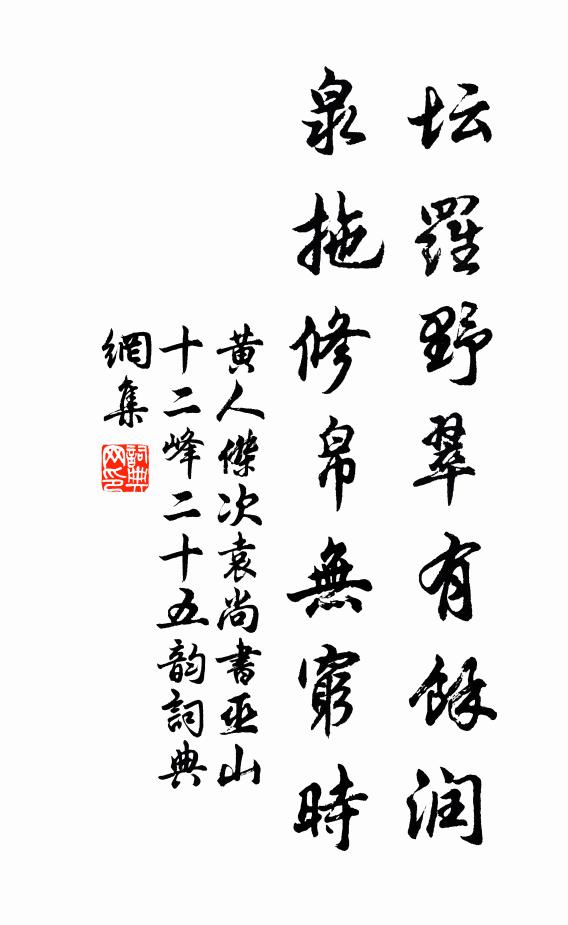 坛羅野翠有餘润
泉拖修帛無窮時
黄人傑次袁尚書巫山
十二峰二十五韵詞典
網集
詞典網印